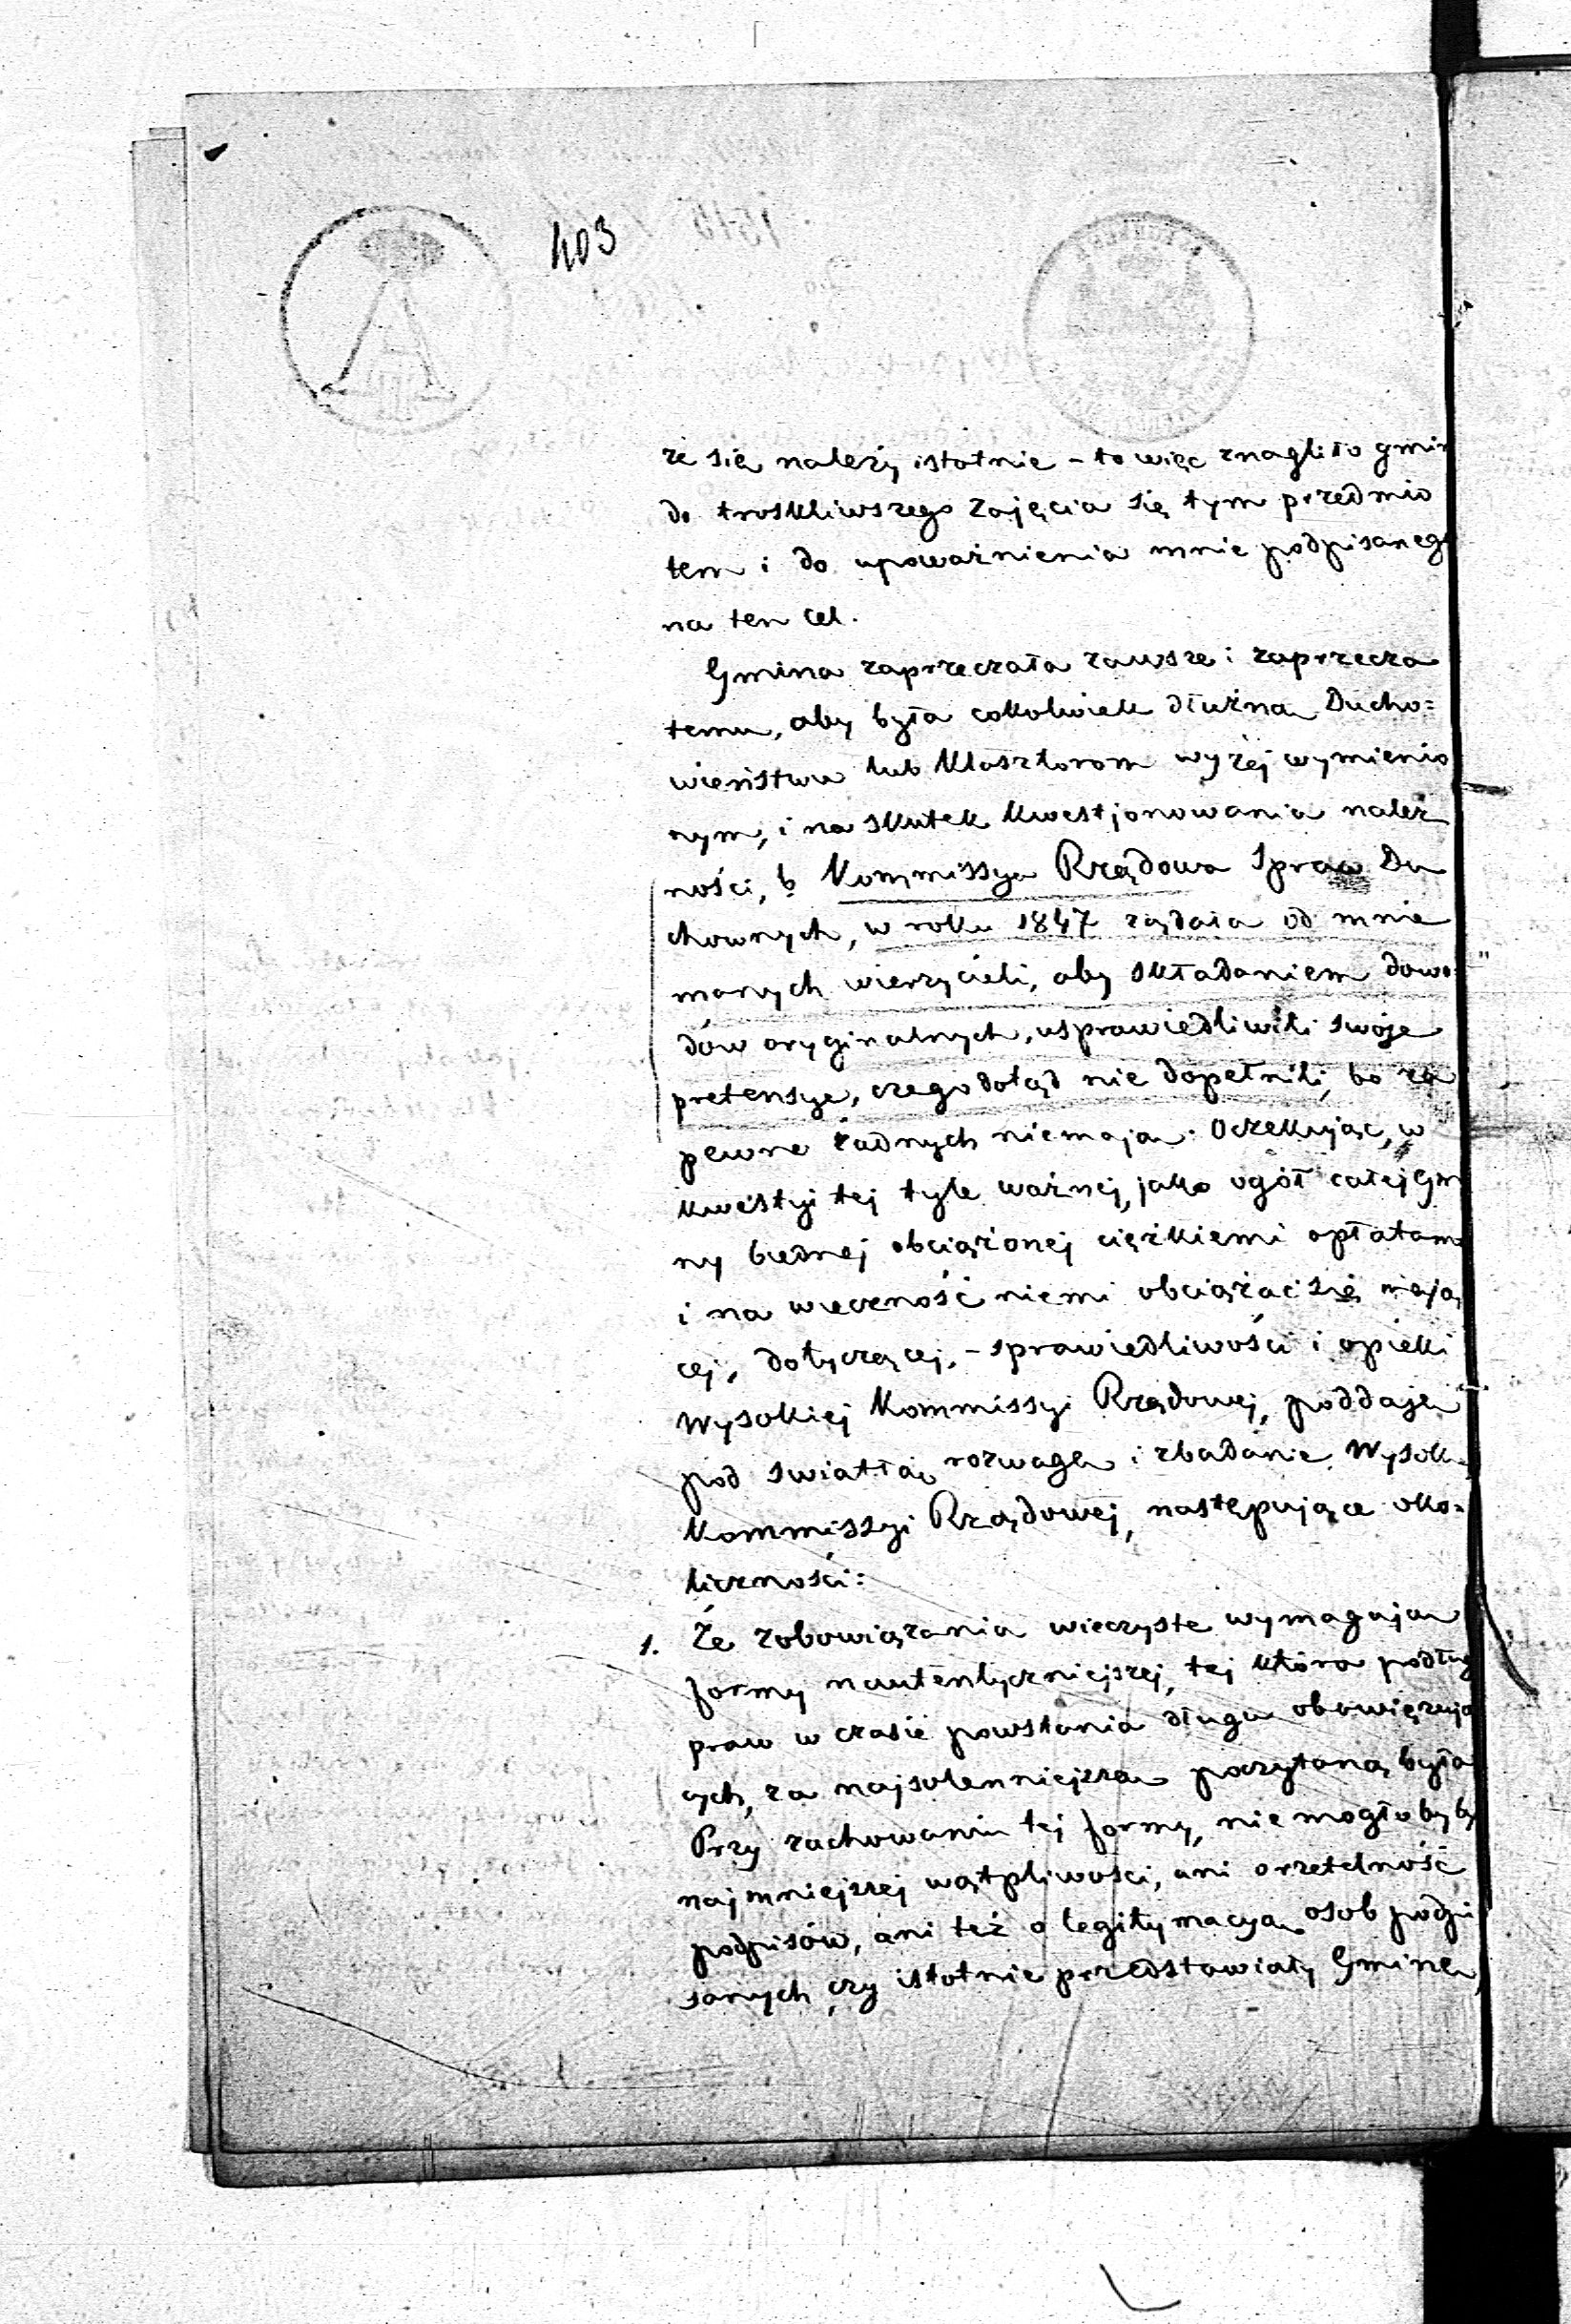 403
że się należy istotnie – to więc znagliło gmin
do troskliwszego zajęcia się tym przedmio
tem i do upoważnienia mnie podpisaneg
na ten cel.
Gmina zaprzeczała zawsze i zaprzecza
temu, aby była cokolwiek dłużna Ducho=
wieństwu lub Klasztorom wyżej wymienio
nym, i na skutek kwestjonowania należ
ności, b Kommissya Rządowa Spraw Du
chownych, w roku 1847 żądała od mnie
manych wierzycieli, aby składaniem dowo
dów oryginalnych, usprawiedliwili swoje
pretensye, czego dotąd nie dopełnili, bo za
pewne żadnych niemają. Oczekując, w
kwestyi tej tyle ważnej, jako ogół całej Gm
ny biednej obciążonej ciężkiemi opłatam
i na wieczność niemi obciążać się mają
cej, dotyczącej, – sprawiedliwości i opieki
Wysokiej Kommissyi Rządowej, poddaję
pod światłą rozwagę i zbadanie Wysoki
Kommissyi Rządowej, następujące oko=
liczności:
1. Że zobowiązania wieczyste wymagają
formy nautentyczniejszej, tej która podług
praw w czasie powstania długu obowięzują
cych, za najsolenniejszą poczytaną była
Przy zachowaniu tej formy, nie mogłoby by
najmniejszej wątpliwości, ani o rzetelność
podpisów, ani też o legitymacyą osob podpi
sanych, czy istotnie przedstawiały Gminę,